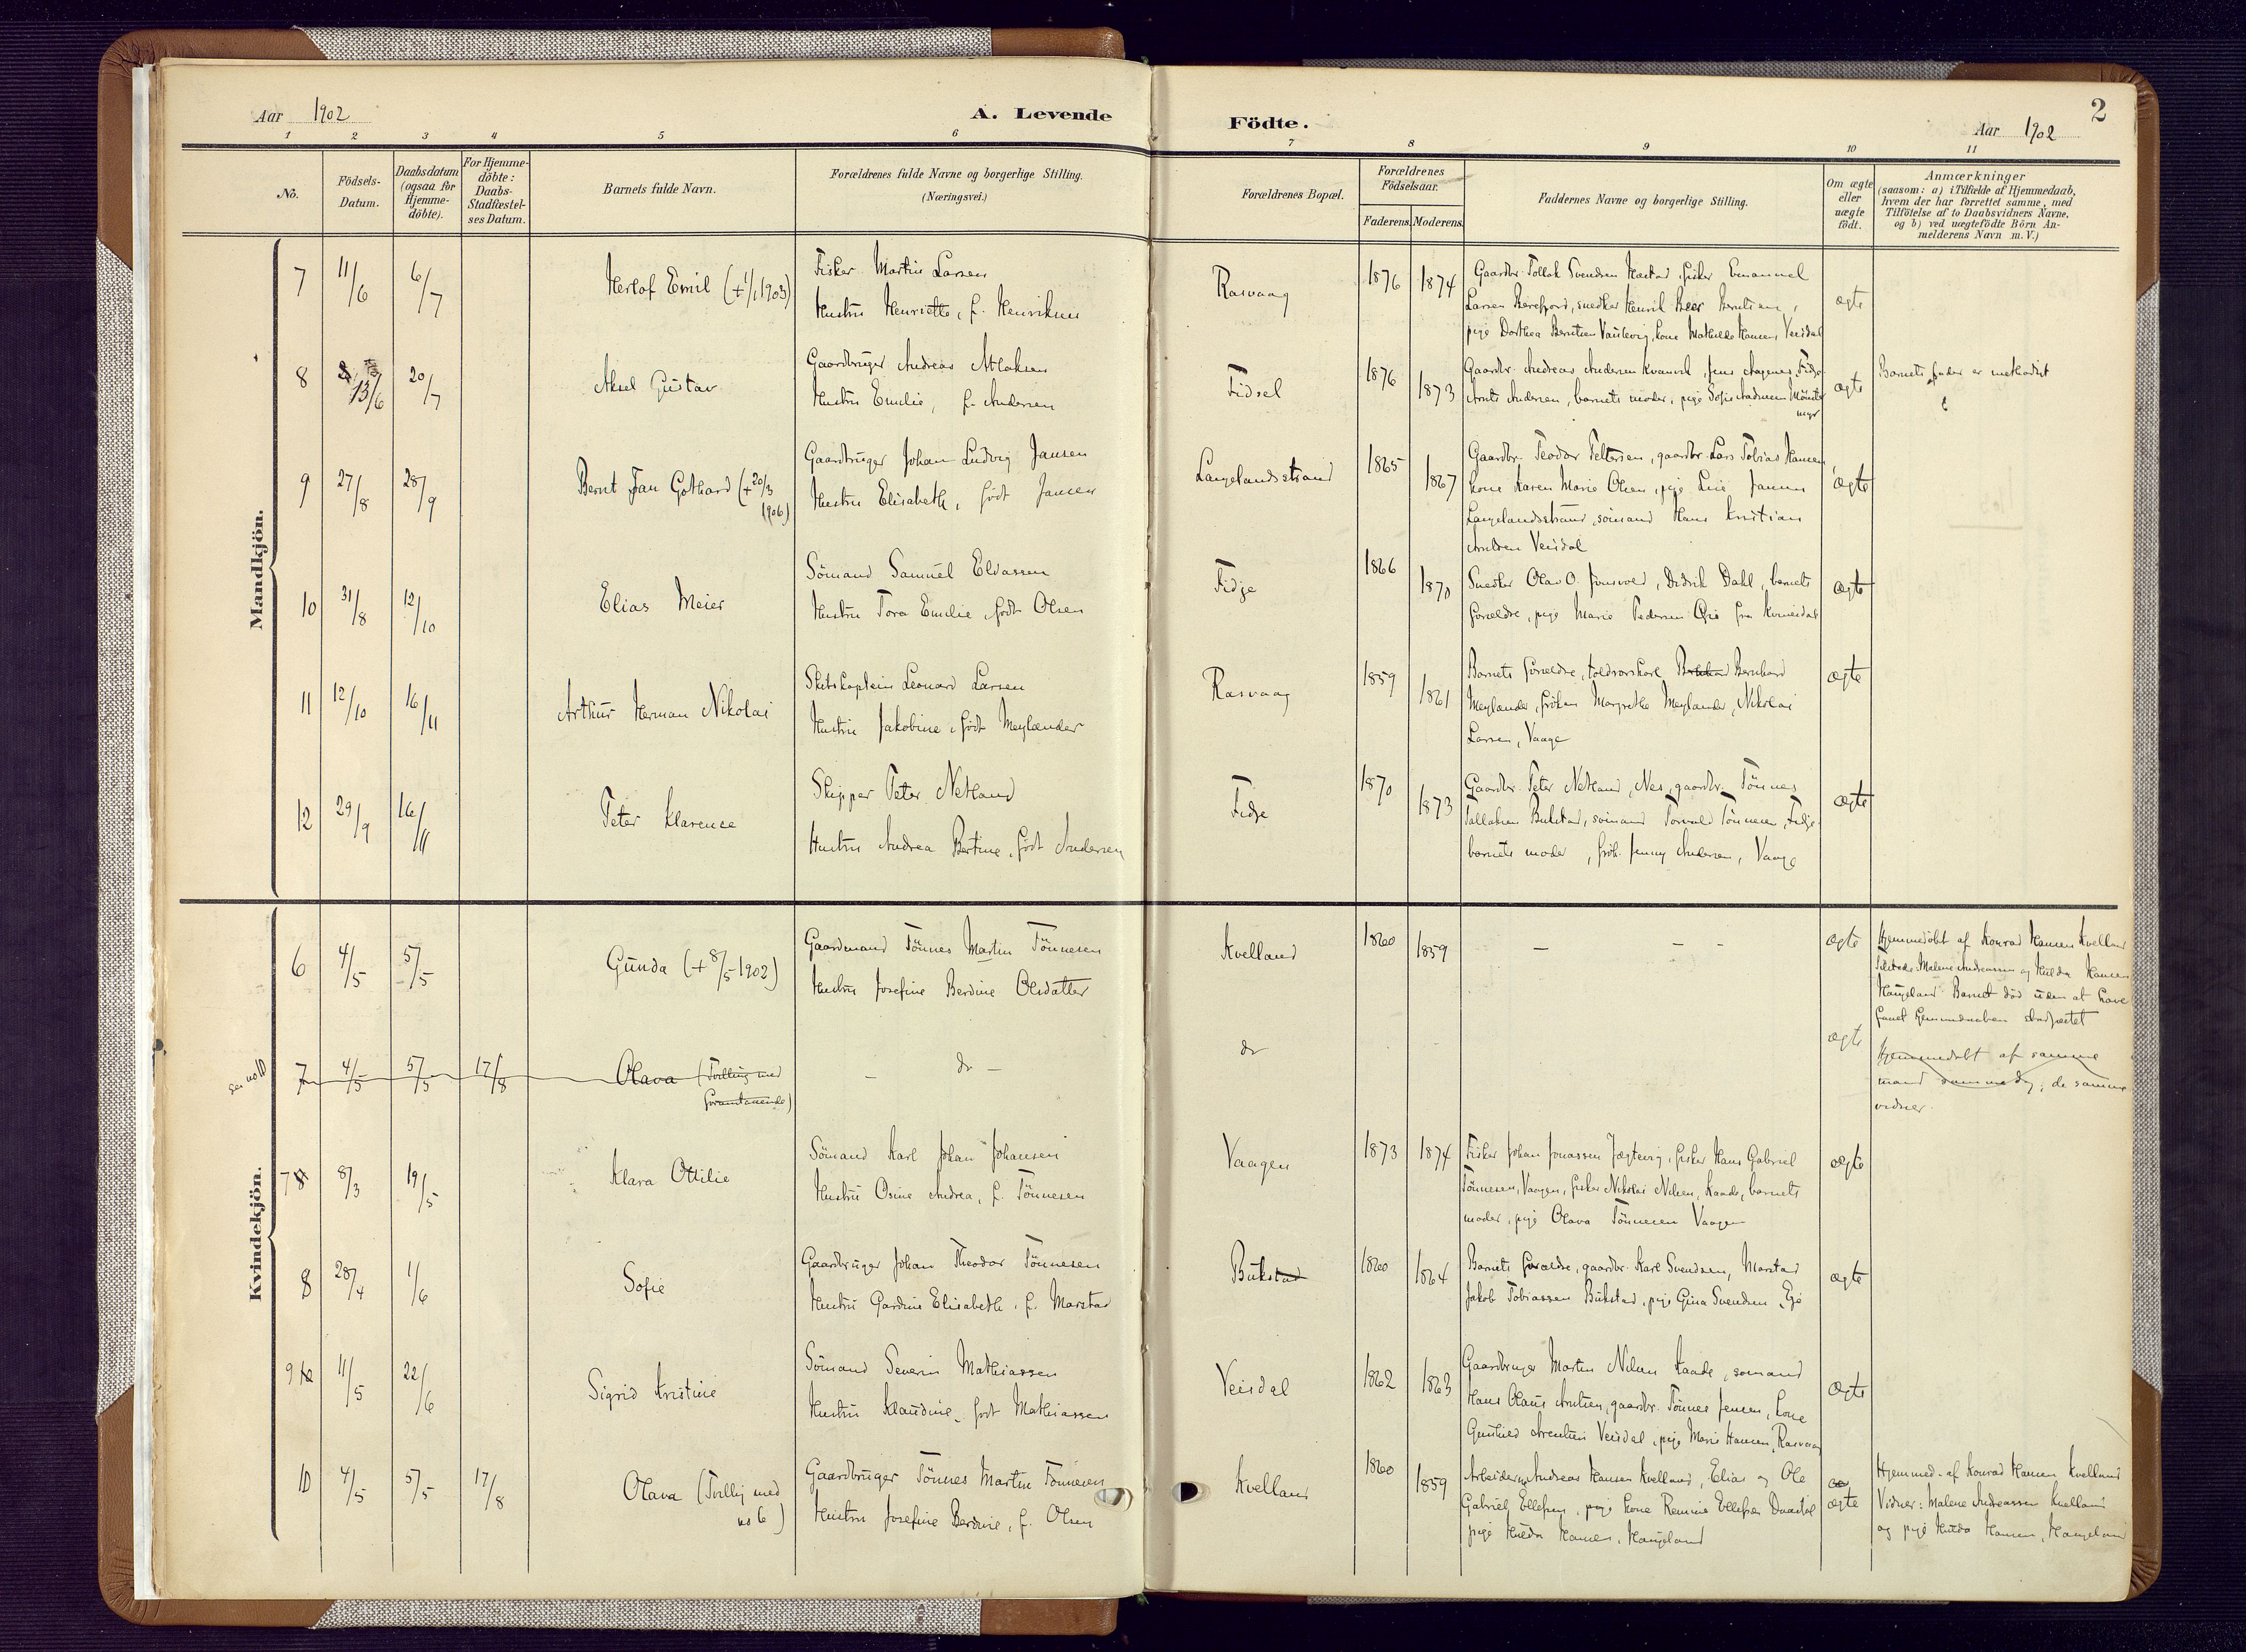 Aar 1902
A. Levende
Födte.
Aar 1902
2
1 2 3 4 5 6 7 8 9 10 11
No.
Födsels-
Datum.
Daabsdatum
(ogsaa for
Hjemme-
döbte).
For Hjemme-
döbte:
Daabs-
Stadfæstel-
ses Datum.
Barnets fulde Navn.
Forældrenes fulde Navne og borgerlige Stilling.
(Næringsvei.)
Forældrenes Bopæl.
Forældrenes
Födselsaar.
Faderens. Moderens.
Faddernes Navne og borgerlige Stilling.
Om ægte
eller
uægte
födt.
Anmærkninger
(saasom: a) i Tilfælde af Hjemmedaab,
hvem der har forrettet samme, med
Tilföielse af to Daabsvidners Navne,
og b) ved uægtefödte Börn An-
melderens Navn m. V.)
Mandkjön.
7 11/6 6/7 Herlof Emil (+ 1/1 1903)
Fisker Martin Larsen
Hustru Henriette, f. Henriksen
Rasvaag 1876 1874
Gaardbr. Tollak Svendsen, fisker Emanuel
Larsen, snedker Henrik Beer Berntsen,
pige Dorthea Berntsen, kone Mathilde Hansen Veisdal
ægte
8 13/6 20/7 Aksel Gustav
Gaardbruger Andreas Atlaksen
Hustru Emilie, f. Andersen
Fidsel 1876 1873
Gaardbr. Andreas Andersen
Andersen, barnets moder, pige Sofie
ægte
Barnets fader er methodist
9 27/8 28/9 Bernt Jan Gothard (+ 20/3
1906)
Gaardbruger Johan Ludvig Jansen
Hustru Elisabeth, född Jansen
Langelandsstrand 1865 1867
Gaardbr. Teodor, gaardbr. Lars Tobias Hansen,
kone Karen Marie Olsen, pige
Langelandsstrand, sömand Hans Kristian
Veisdal
ægte
10 31/8 12/10 Elias Meier
Sömand Samuel Eliassen
Hustru Tora Emilie, född Olsen
Fidje 1866 1870
Snedker Olav O., Didrik Dahl, barnets
forældre, pige Marie Pedersen fra Kvinesdal
ægte
11 12/10 16/11 Arthur Herman Nikolai
Skibskaptein Leonard Larsen
Hustru Jakobine, född Meylænder
Rasvaag 1859 1861
Barnets forældre, Bernhard
Meylænder, fröken Margrethe Meylænder, Nikolai
Larsen, Vaage
ægte
12 29/9 16/11 Peter Klarence
Skipper Peter Netland
Hustru Andrea Bertine, född Andersen
Fidje 1870 1873
Gaardbr. Peter Netland, Nes, gaardbr. Tönnes
Tallaksen Bukstad, sömand Torvald Tönnesen, Fidje
barnets moder, frök. Jenny Andersen, Vaage
ægte
Kvindekjön.
6 4/5 5/5 Gunda (+ 8/5 1902)
Gaardmand Tönnes Martin Tönnesen
Hustru Josefine Berdine Olsdatter
Kvelland 1860 1859
— — —
ægte
Hjemmedöbt af Konrad Hansen Kvelland
Malene Andreassen og Hulda Hansen
Haugeland. Barnet död uden at have
faaet hjemmedaaben stadfæstet
se no 10
7 4/5 5/5 17/8 Olava (Tvilling med
foranstaaende)
— do —
do
ægte
Hjemmedöbt af samme
mand samme dag; de samme
vidner.
7 8 8/3 19/5 Klara Ottilie
Sömand Karl Johan Johansen
Hustru Osine Andrea, f. Tönnesen
Vaagen 1873 1874
Fisker Johan Jonassen Jegtevig, fisker Hans Gabriel
Tönnesen, Vaagen, fisker Nikolai Nilsen, Kaade, barnets
moder, pige Olava Tönnesen Vaagen
ægte
8 28/4 1/6 Sofie
Gaardbruger Johan Theodor Tönnesen
Hustru Gardine Elisabeth, f. Marstad
Bukstad 1860 1864
Barnets forældre, gaardbr. Karl Svendsen, Marstad
Jakob Tobiassen Bukstad, pige Gina Svendsen Eje
ægte
9 10 11/5 22/6 Sigrid Kristine
Sömand Severin Mathiassen
Hustru Klaudine, född Mathiassen
Veisdal 1862 1863
Gaardbruger Martin Nilsen Kaade, sömand
Hans Olaus, gaardbr. Tönnes Jensen, kone
Gunhild Arentsen Veisdal, pige Marie Hansen, Rasvaag
ægte
10 4/5 5/5 17/8 Olava (Tvilling med
no 6)
Gaardbruger Tönnes Martin Tönnesen
Hustru Josefine Berdine, f. Olsen
Kvelland 1860 1859
Arbeider Andreas Hansen Kvelland, Elias og Ole
Gabriel Ellefsen, kone Ellefsen
pige Hulda Hansen, Haugeland
ægte
Hjemmed. af Konrad Hansen Kvelland
Vidner: Malene Andreassen Kvelland
og pige Hulda Hansen, Haugeland